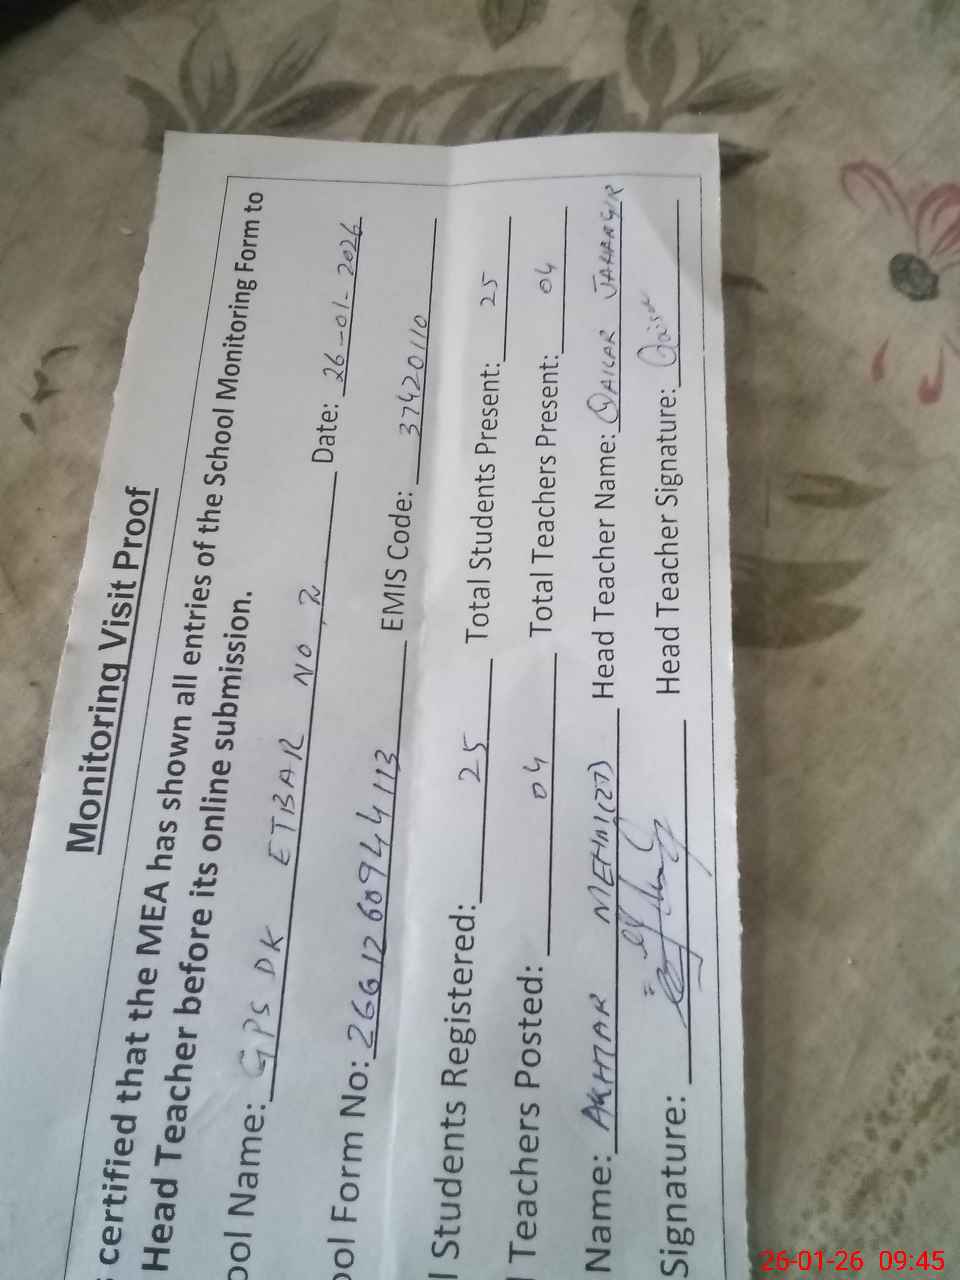 Monitoring Visit Proof
certified that the MEA has shown all entries of the School Monitoring Form to
Head Teacher before its online submission.
ool Name: GPS DK ETBAR NO 2 Date: 26-01-2026
ool Form No: 26612609444113 EMIS Code: 37420110
l Students Registered: 25 Total Students Present: 25
l Teachers Posted: 04 Total Teachers Present: 04
Name: AKHTAR (27) Head Teacher Name: JAHANGIR
Signature: Head Teacher Signature:
26-01-26 09:45